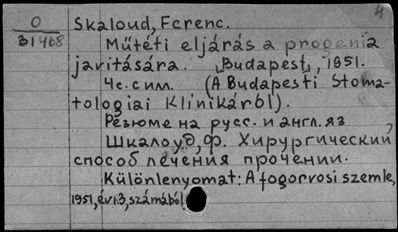 4
O
31468
Skaloud, Ferenc.
Műtéti eljárás a progenia
javitására. [Budapest], 1951.
4c. с илл. (A Budapesti Stoma-
tologiai Klinikáról).
Резюме на русс. и англ. яз,
Шкалоуд, Ф. Хирургический
способ лечения прочении.
Különlenyomat: A fogorvosi szemle,
1951, évi.3, számából.